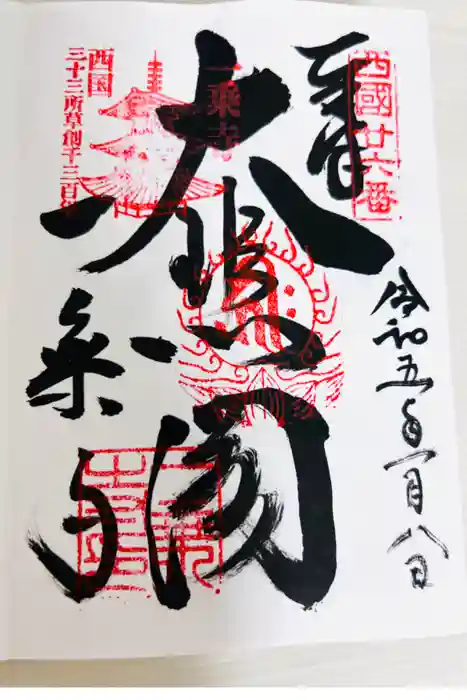 西國廿六番
奉拝
令和五年一月八日
一乗寺
大悲閣
一乗寺
西国
三十三所草創千三百